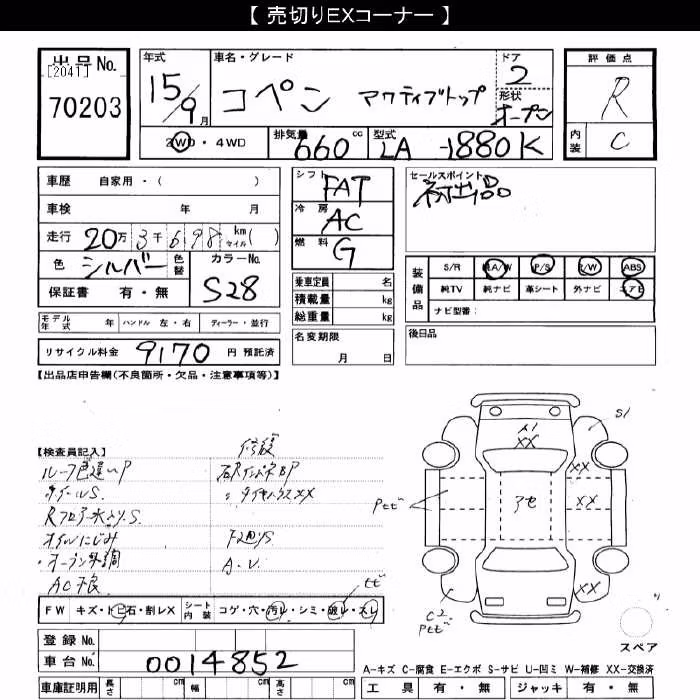 【 売切りEXコーナー 】
出品No.
[2041]
70203
年式
15/9月
車名・グレード
コペン アクティブトップ
ドア
2
形状
オープン
評価点
R
内装
C
2WD・4WD
排気量
660cc
型式
LA-L880K
車歴 自家用・( )
車検 年 月
走行 20万3千698km マイル( )
色 シルバー 色替
カラーNo.
S28
保証書 有・無
シフト
FAT
冷房
AC
燃料
G
乗車定員 名
積載量 kg
総重量 kg
セールスポイント
初出品
装備品
S/R 純A/W P/S P/W ABS
純TV 純ナビ 革シート 外ナビ エアB
ナビ型番:
モデル年式 年 ハンドル 左・右 ディーラー・並行
リサイクル料金 9170 円 預託済
名変期限
月 日
後日品
【出品店申告欄(不良箇所・欠品・注意事項等)】
【検査員記入】
修復
ルーフ色違いP
ホイールS.
Rフロアー水入り.S.
オイルにじみ
AC不良
A1
XX
S1
XX
Pとび
アセ
XX
XX
C2
Pとび
とび
FW キズ・トビ石・割レX
シート内装 コゲ・穴・汚レ・シミ・破レ・スレ
登録No.
車台No. 0014852
車庫証明用 長さ cm 幅 cm 高さ cm
スペア
A-キズ C-腐食 E-エクボ S-サビ U-凹ミ W-補修 XX-交換済
工具 有・無 ジャッキ 有・無